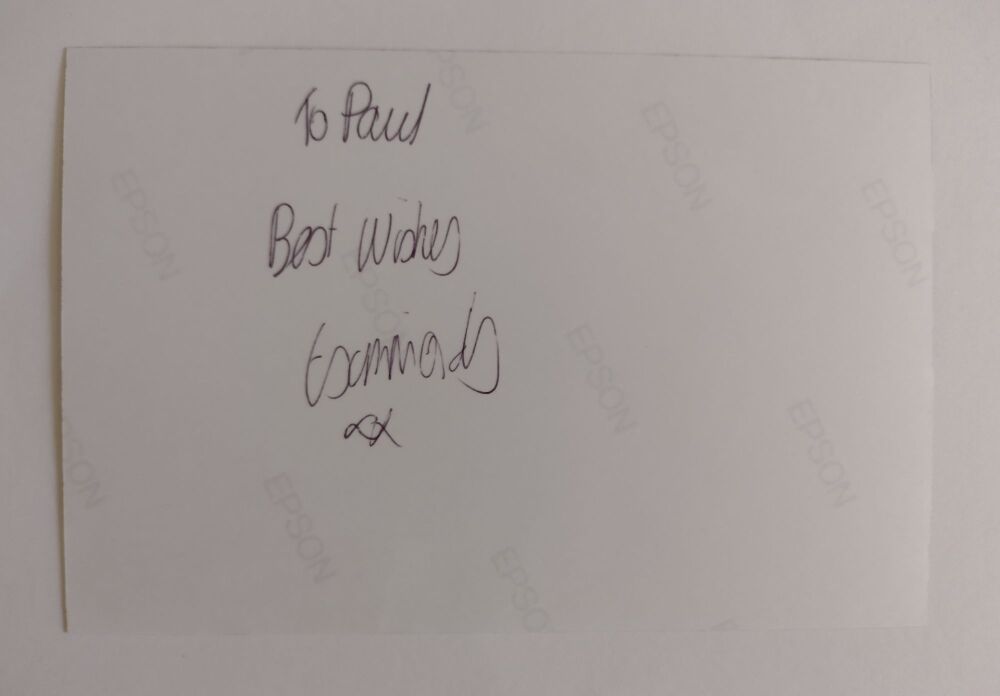 To Paul
Best Wishes
xx
EPSON
EPSON
EPSON
EPSON
EPSON
EPSON
EPSON
EPSON
EPSON
EPSON